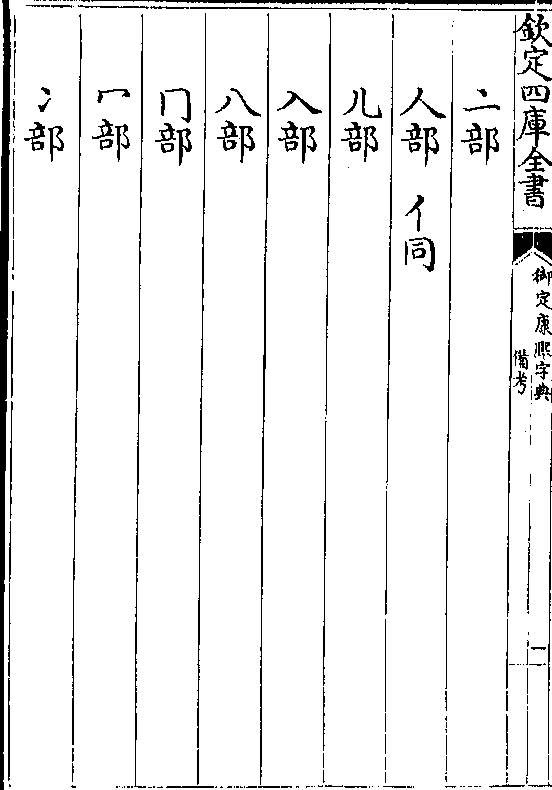 欽定四庫全書
御定康熙字典
備考
一
亠部
人部 亻同
儿部
入部
八部
冂部
冖部
冫部